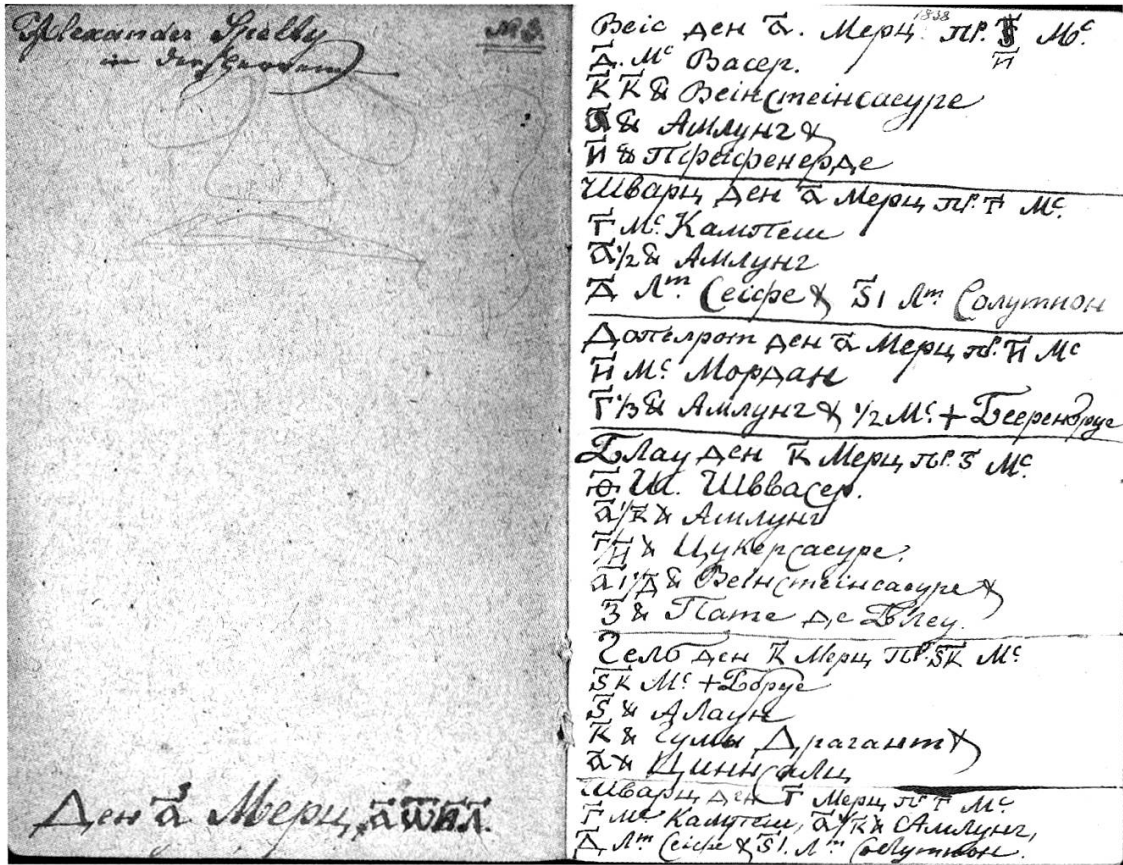 Alexander Spelty
in
№ 3.
Ден а҃ Мерц, аѿил.
Веіс ден а҃. Мерц 1838 пр. Мс.
Д҃. Мс Васер.
К҃ К ℔ Веінстеінсаеуре
℔ Амлунг &
И҃ ℔ Пфеіфенерде
Шварц Ден а҃ Мерц пр. Г҃ Мс.
Г҃ Мс. Кампеш
а҃ 1/2 ℔ Амлунг
Д҃ Лт. Сеіфе & Ѕ҃І Лт. Солутион
Допелрот ден а҃ Мерц пр. И҃ Мс
И҃ Мс. Мордан
Г҃ 1/3 ℔ Амлунг & 1/2 Мс. + Бееренбруе
Блау ден К҃ Мерц пр. Ѕ҃ Мс.
Ф҃ Ш. Швваcер.
а҃ 1/К҃ ℔ Амлунг
Г҃/И҃ ℔ Цукерсаеуре.
а҃ 1/Д҃ ℔ Веінстеінсаеуре &
З ℔ Пате де Блеу.
Гелб ден К҃ Мерц пр. Ѕ҃К Мс.
Ѕ҃К Мс + Ббруе
Ѕ҃ ℔ Алаун
К҃ ℔ Гумы Драгант &
а҃ ℔ Циннсалц
Шварц Ден Г҃ Мерц пр Г҃ Мс
Г҃ Мс Кампеш, а҃ 1/К҃ ℔ Амлунг,
Д҃ Лт Сеіфе & Ѕ҃І. Лт Солутион.